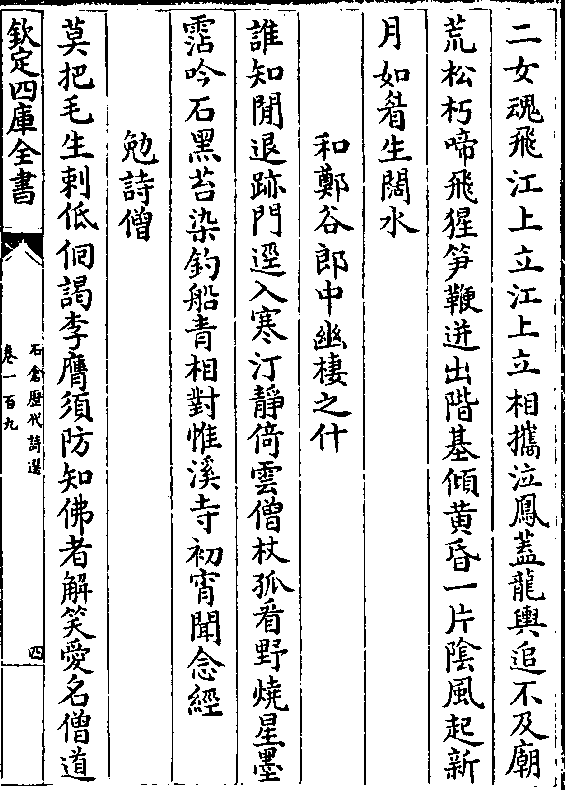 二女魂飛江上立江上立相攜泣鳳蓋龍輿追不及廟
荒松朽啼飛猩笋鞭迸出階基傾黄昏一片陰風起新
月如眉生闊水
和鄭谷郎中幽棲之什
誰知閒退跡門逕入寒汀靜倚雲僧杖孤看野燒星墨
霑吟石黑苔染釣船青相對惟溪寺初宵聞念經
勉詩僧
莫把毛生刺低佪謁李膺須防知佛者解笑愛名僧道
欽定四庫全書
石倉歴代詩選
卷一百九
四